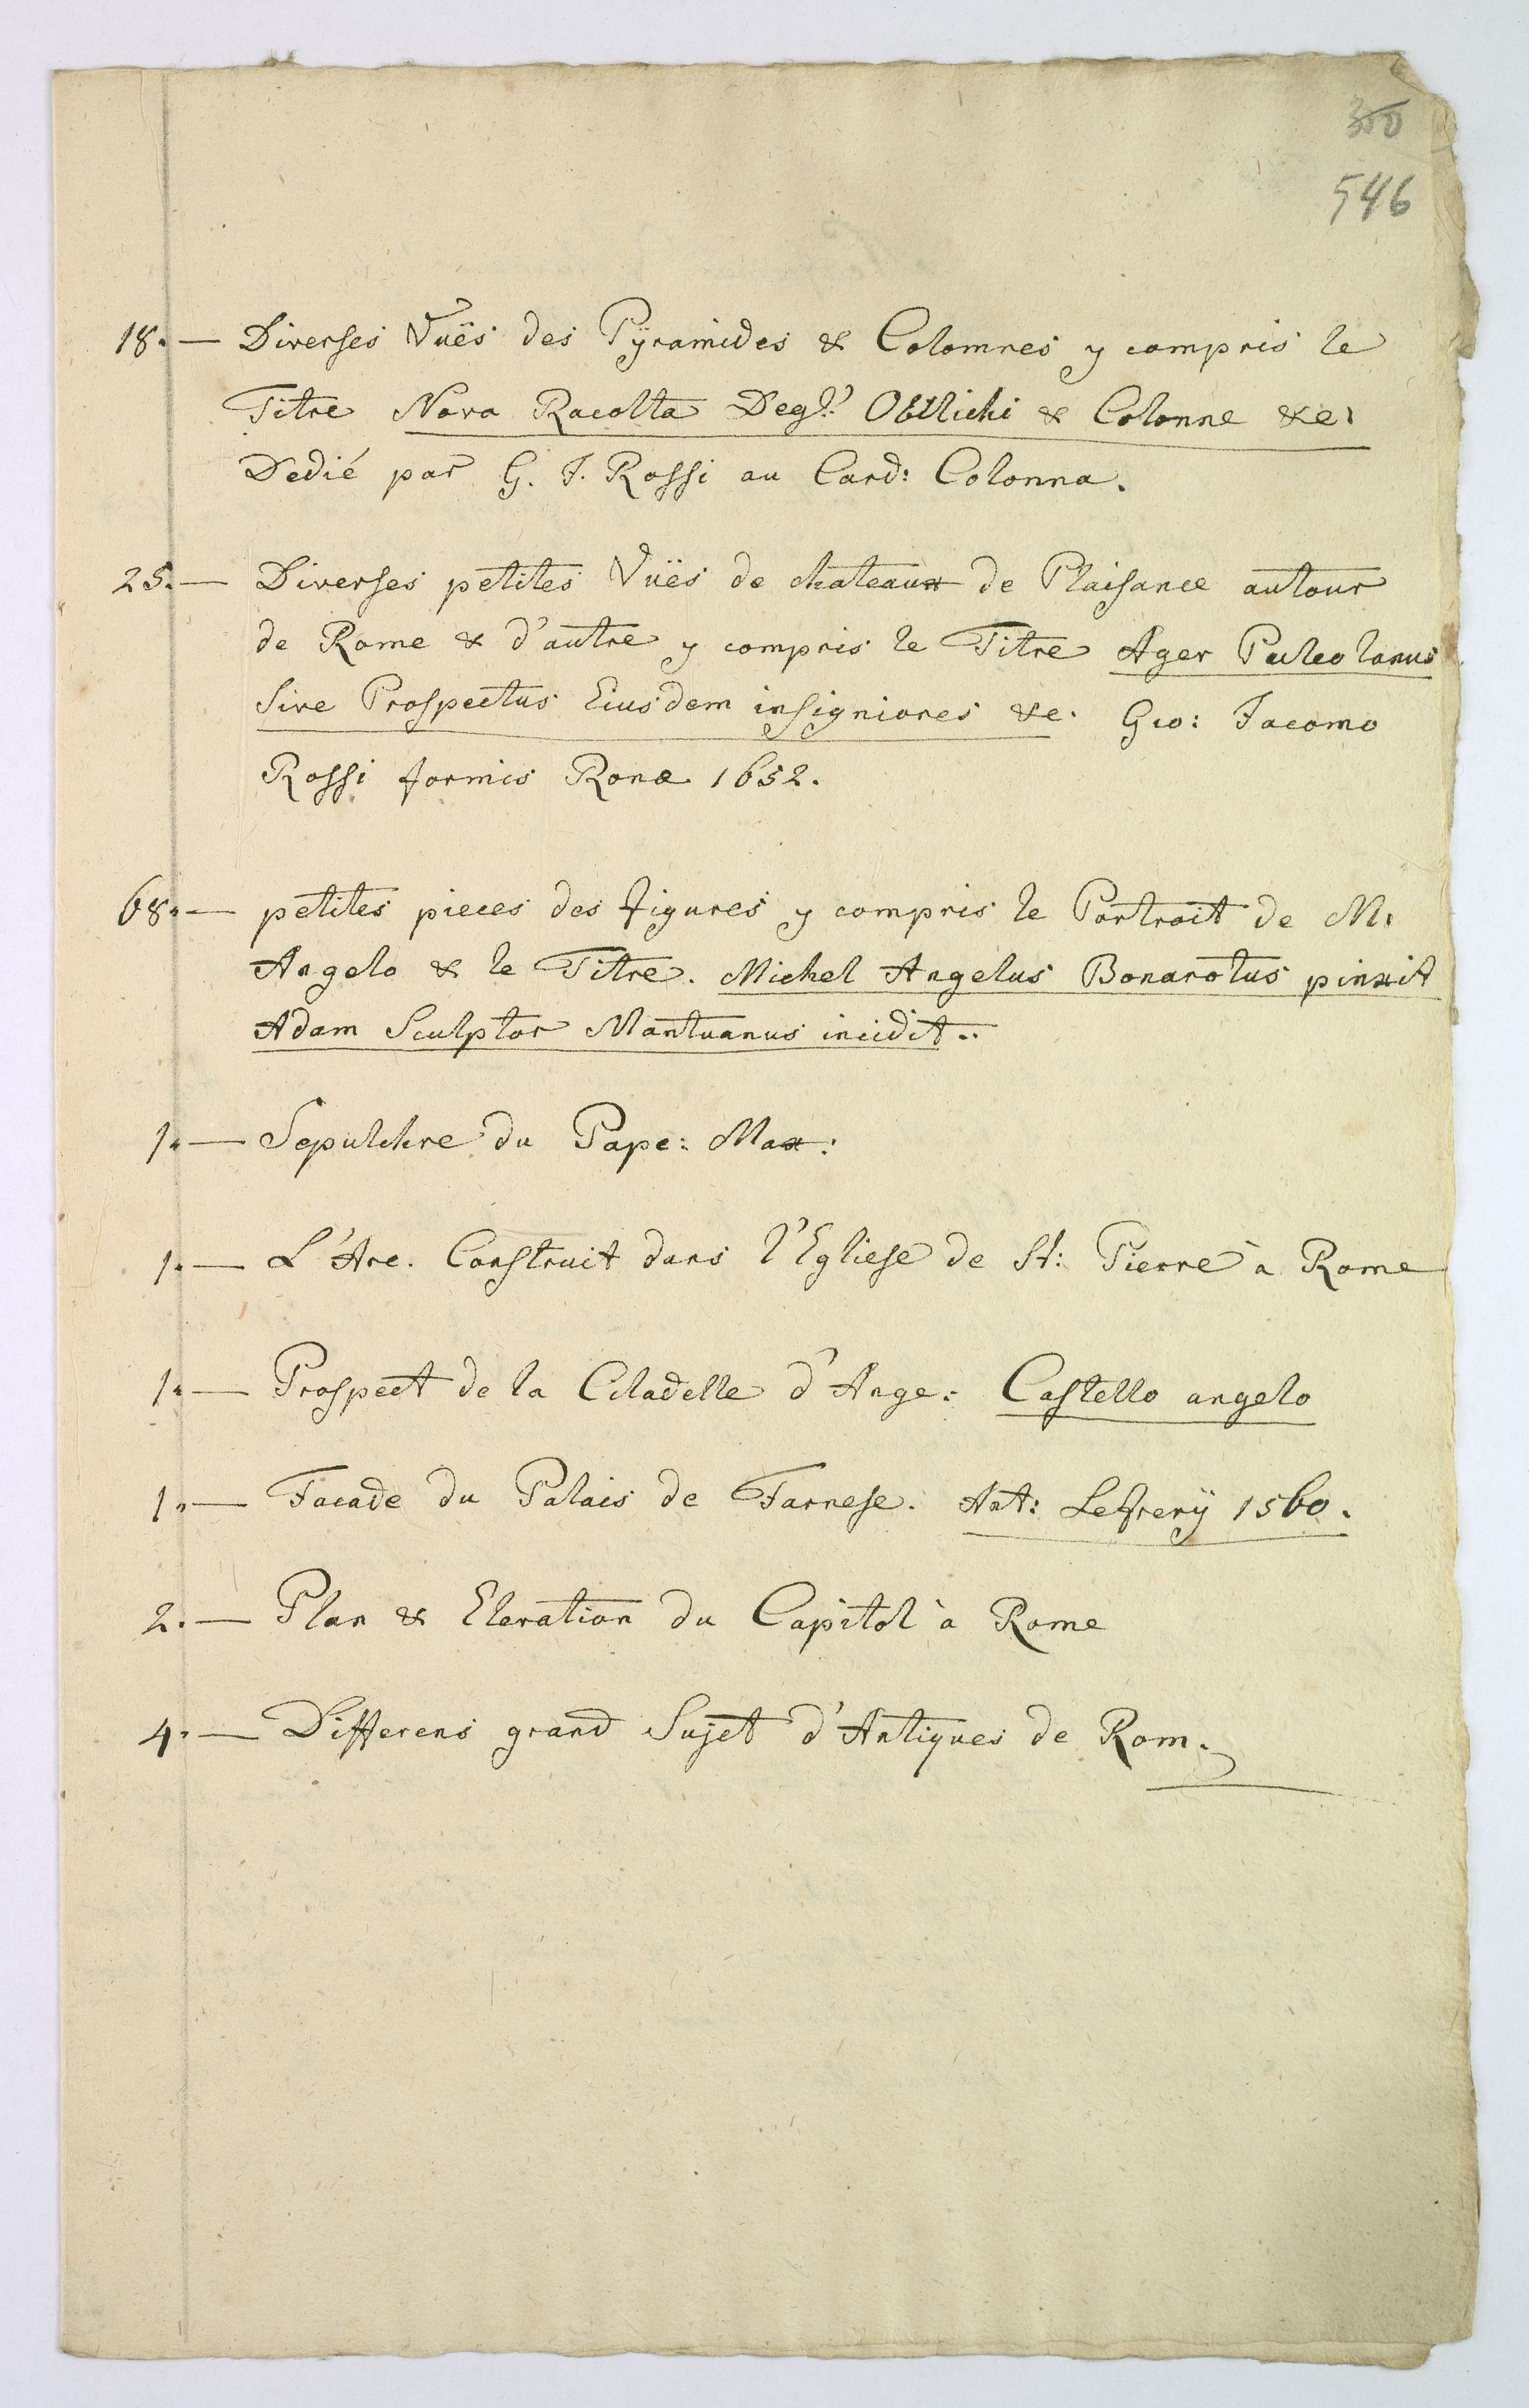 350
546
18. — Diverses Vuës des Pÿramides & Colomnes y compris le
Titre Nova Racolta Degl.' Obllichi & Colonne &c.
Dedié par G. J. Rossi au Card: Colonna.
25. — Diverses petites Vuës de chateaux de Plaisance autour
de Rome & d'autre y compris le Titre Ager Puteolanus
Sive Prospectus Eiusdem insigniores &c. Gio: Jacomo
Rossi formis Romæ 1652.
68. — petites pieces des figures y compris le Portrait de M.
Angelo & le Titre. Michel Angelus Bonarotus pinxit
Adam Sculptor Mantuanus incidit..
1. — Sepulchre du Pape: Max:
1. — L'Arc. Construit dans l'Egliese de St: Pierre à Rome
1. — Prospect de la Citadelle d'Ange: Castello angelo
1. — Facade du Palais de Farnese. Ant: Lefrerÿ 1560.
2. — Plan & Elevation du Capitol à Rome
4. — Differens grand Sujet d'Antiques de Rom.